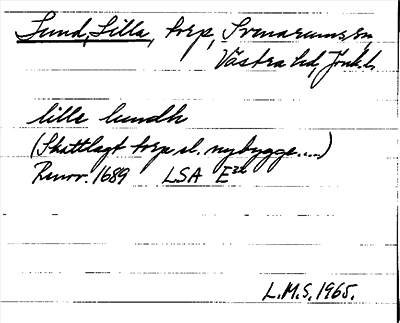 Lund, Lilla, torp, Svenarums sn,
Västra hd, Jönk. l.
lille lundh
(Skattlagt torp el. nybygge....)
Renov. 1689 LSA E22
L.M.S. 1965.